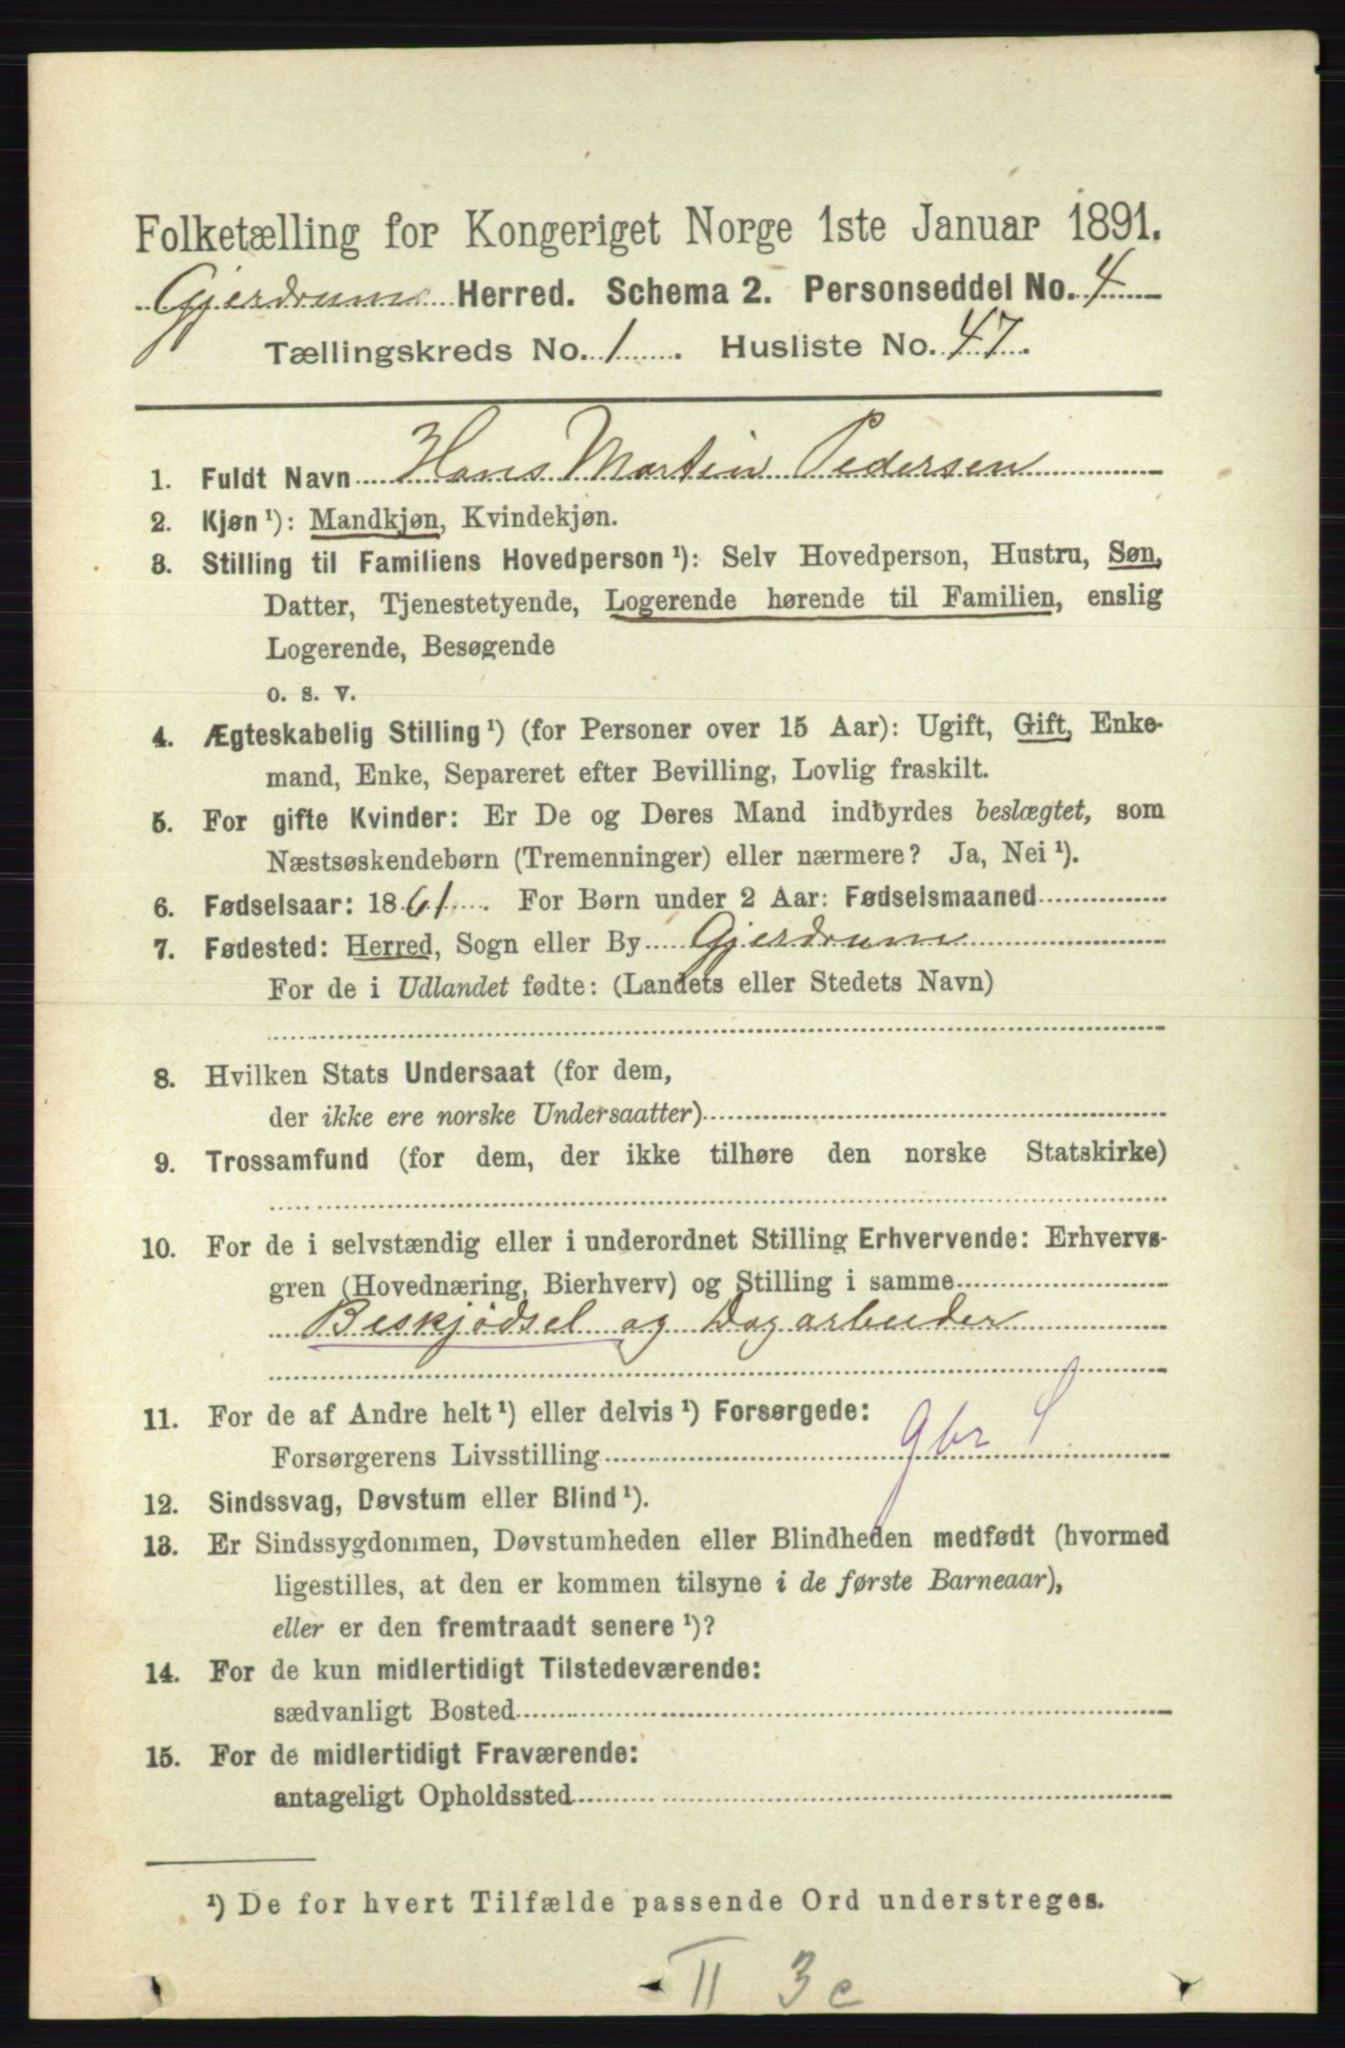 Folketælling for Kongeriget Norge 1ste Januar 1891.
Gjerdrum Herred. Schema 2. Personseddel No. 4
Tællingskreds No. 1. Husliste No. 47.
1. Fuldt Navn Hans Martin Pedersen
2. Kjøn¹): Mandkjøn, Kvindekjøn.
3. Stilling til Familiens Hovedperson¹): Selv Hovedperson, Hustru, Søn,
Datter, Tjenestetyende, Logerende hørende til Familien, enslig
Logerende, Besøgende
o. s. v.
4. Ægteskabelig Stilling¹) (for Personer over 15 Aar): Ugift, Gift, Enke-
mand, Enke, Separeret efter Bevilling, Lovlig fraskilt.
5. For gifte Kvinder: Er De og Deres Mand indbyrdes beslægtet, som
Næstsøskendebørn (Tremenninger) eller nærmere? Ja, Nei¹).
6. Fødselsaar: 1861. For Børn under 2 Aar: Fødselsmaaned
7. Fødested: Herred, Sogn eller By Gjerdrum
For de i Udlandet fødte: (Landets eller Stedets Navn)
8. Hvilken Stats Undersaat (for dem,
der ikke ere norske Undersaatter)
9. Trossamfund (for dem, der ikke tilhøre den norske Statskirke)
10. For de i selvstændig eller i underordnet Stilling Erhvervende: Erhvervs-
gren (Hovednæring, Bierhverv) og Stilling i samme
Beskjödsel og Dagarbeider
11. For de af Andre helt¹) eller delvis¹) Forsørgede:
Forsørgerens Livsstilling gbr S
12. Sindssvag, Døvstum eller Blind¹).
13. Er Sindssygdommen, Døvstumheden eller Blindheden medfødt (hvormed
ligestilles, at den er kommen tilsyne i de første Barneaar),
eller er den fremtraadt senere¹)?
14. For de kun midlertidigt Tilstedeværende:
sædvanligt Bosted
15. For de midlertidigt Fraværende:
antageligt Opholdssted
¹) De for hvert Tilfælde passende Ord understreges.
II 3c